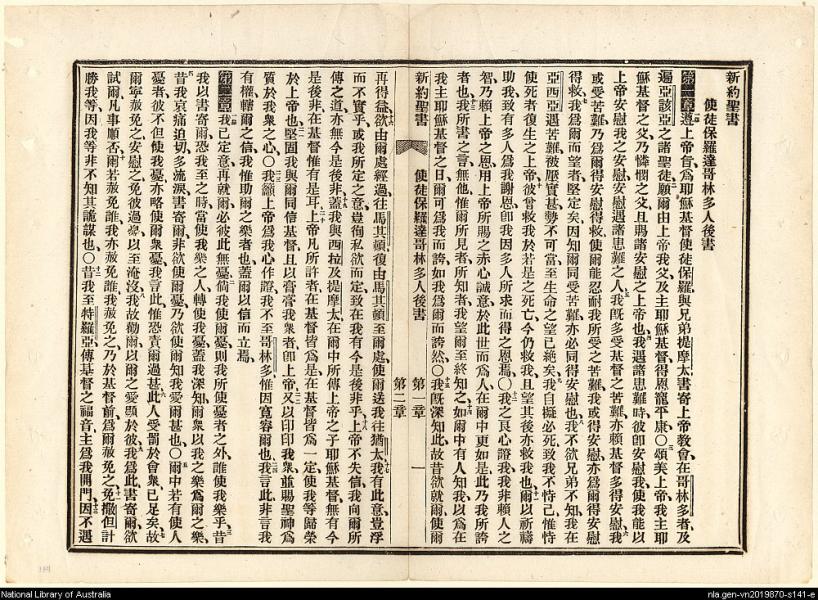 新約聖書
使徒保羅達哥林多人後書
第一章 遵上帝旨爲耶穌基督使徒保羅與兄弟提摩太書寄上帝教會在哥林多者及
遍亞該亞之諸聖徒願爾由上帝我父及主耶穌基督得恩寵平康〇頌美上帝我主耶
穌基督之父乃憐憫之父且賜諸安慰之上帝也我遇諸患難時彼卽安慰我使我能以
上帝安慰我之安慰安慰遇諸患難之人我旣多受基督之苦難亦賴基督多得安慰我
或受苦難乃爲爾得安慰得救使爾能忍耐我所受之苦難我或得安慰亦爲爾得安慰
得救我爲爾而望者堅定矣因知爾同受苦難亦必同得安慰也我不欲兄弟不知我在
亞西亞遇苦難被壓實甚勢不可當至生命之望已絕矣我自擬必死致我不恃己惟恃
使死者復生之上帝彼曾救我於若是之死亡今仍救我且望其後亦救我也爾以祈禱
助我致有多人爲我謝恩卽我因多人所求而得之恩焉〇我之良心證我我非賴人之
智乃賴上帝之恩用上帝所賜之赤心誠意於此世而爲人在爾中更如是此乃我所誇
者也我所書之言無他惟爾所見者所知者我望爾至終知之如爾中有人知我以爲在
我主耶穌基督之日爾可爲我而誇如我爲爾而誇然〇我旣深知此故昔欲就爾使爾
新約聖書 使徒保羅達哥林多人後書 第一章 一
第二章
再得益欲由爾處經過往馬其頓復由馬其頓至爾處使爾送我往猶太我有此意豈浮
而不實乎或我所定之意豈徇私欲而定致在我有今是後非乎上帝不失信我向爾所
傳之道亦無今是後非蓋我與西拉及提摩太在爾中所傳上帝之子耶穌基督無有今
是後非在基督惟有是耳上帝凡所許者在基督皆爲是在基督皆爲一定使我等歸榮
於上帝也堅固我與爾同信基督且以膏膏我衆者卽上帝又以印印我衆並賜聖神爲
質於我衆之心〇我籲上帝爲我心作證我不至哥林多惟因寬容爾也我言此非言我
有權轄爾之信我惟助爾之樂者也蓋爾以信而立焉
第二章 我已定意再就爾必彼此無憂倘我使爾憂則我所使憂者之外誰使我樂乎昔
我以書寄爾恐我至之時當使我樂之人轉使我憂蓋我深知爾衆以我之樂爲爾之樂
昔我哀痛迫切多流淚書寄爾非欲使爾憂乃欲使爾知我愛爾甚也〇爾中若有使人
憂者彼不但使我憂亦略使爾衆憂我言此惟恐責爾過甚此人受罰於會衆已足矣故
爾寧赦免之安慰之免彼過憂以至淹沒我故勸爾以爾之愛顯於彼我爲此書寄爾欲
試爾凡事順否爾若赦免誰我亦赦免誰我赦免之乃於基督前爲爾赦免之免撒但計
勝我等因我等非不知其詭謀也〇昔我至特羅亞傳基督之福音主爲我開門因不遇
National Library of Australia
nla.gen-vn2019870-s141-e